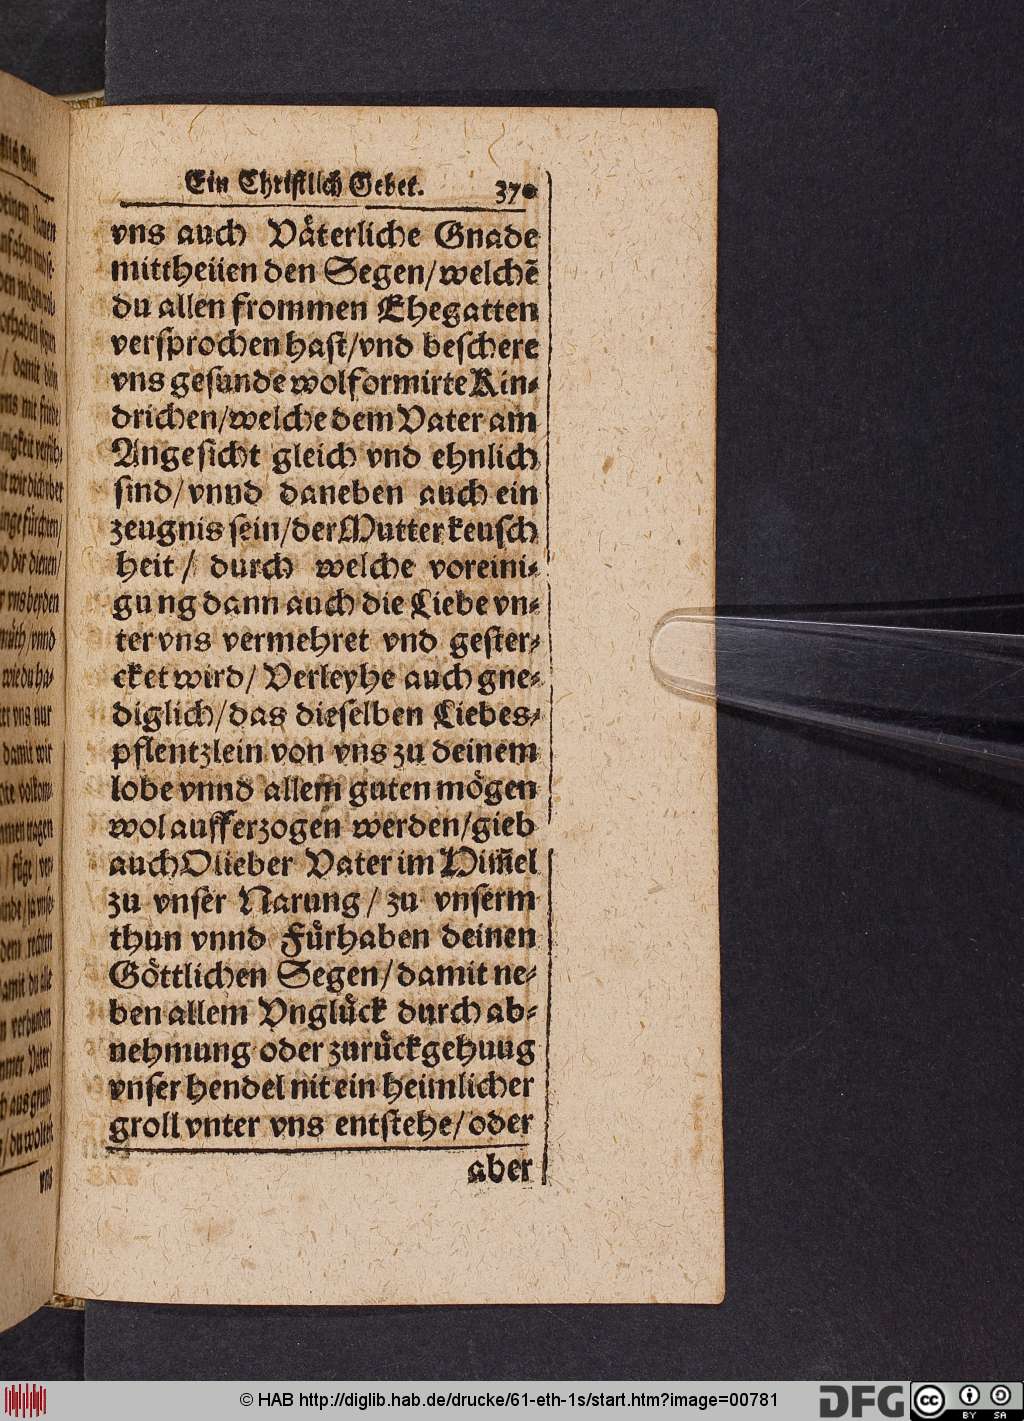 Ein Christlich Gebet. 37
vns auch Väterliche Gnade
mittheiien den Segen/welchē
du allen frommen Ehegatten
versprochen hast/vnd beschere
vns gesunde wolformirte Kin-
drichen/welche dem Vater am
Angesicht gleich vnd ehnlich
sind/vnnd daneben auch ein
zeugnis sein/der Mutter keusch
heit/ durch welche voreini-
gung dann auch die Liebe vn-
ter vns vermehret vnd gester-
cket wird/ Verleyhe auch gne-
diglich/das dieselben Liebes-
pflentzlein von vns zu deinem
lobe vnnd allem guten mögen
wol aufferzogen werden/gieb
auch O lieber Vater im Him̄el
zu vnser Narung/ zu vnserm
thun vnnd Fürhaben deinen
Göttlichen Segen/damit ne-
ben allem Vnglück durch ab-
nehmung oder zurückgehuug
vnser hendel nit ein heimlicher
groll vnter vns entstehe/oder
aber
© HAB http://diglib.hab.de/drucke/61-eth-1s/start.htm?image=00781
DFG
cc BY SA